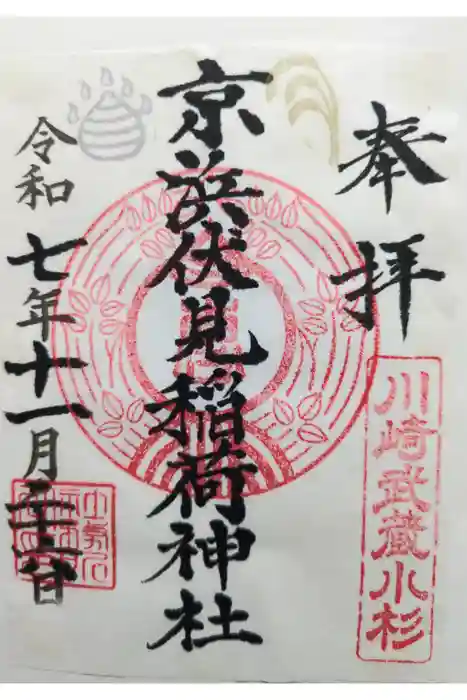 奉拝
川崎武蔵小杉
京浜伏見稲荷神社
令和七年十一月二十二日